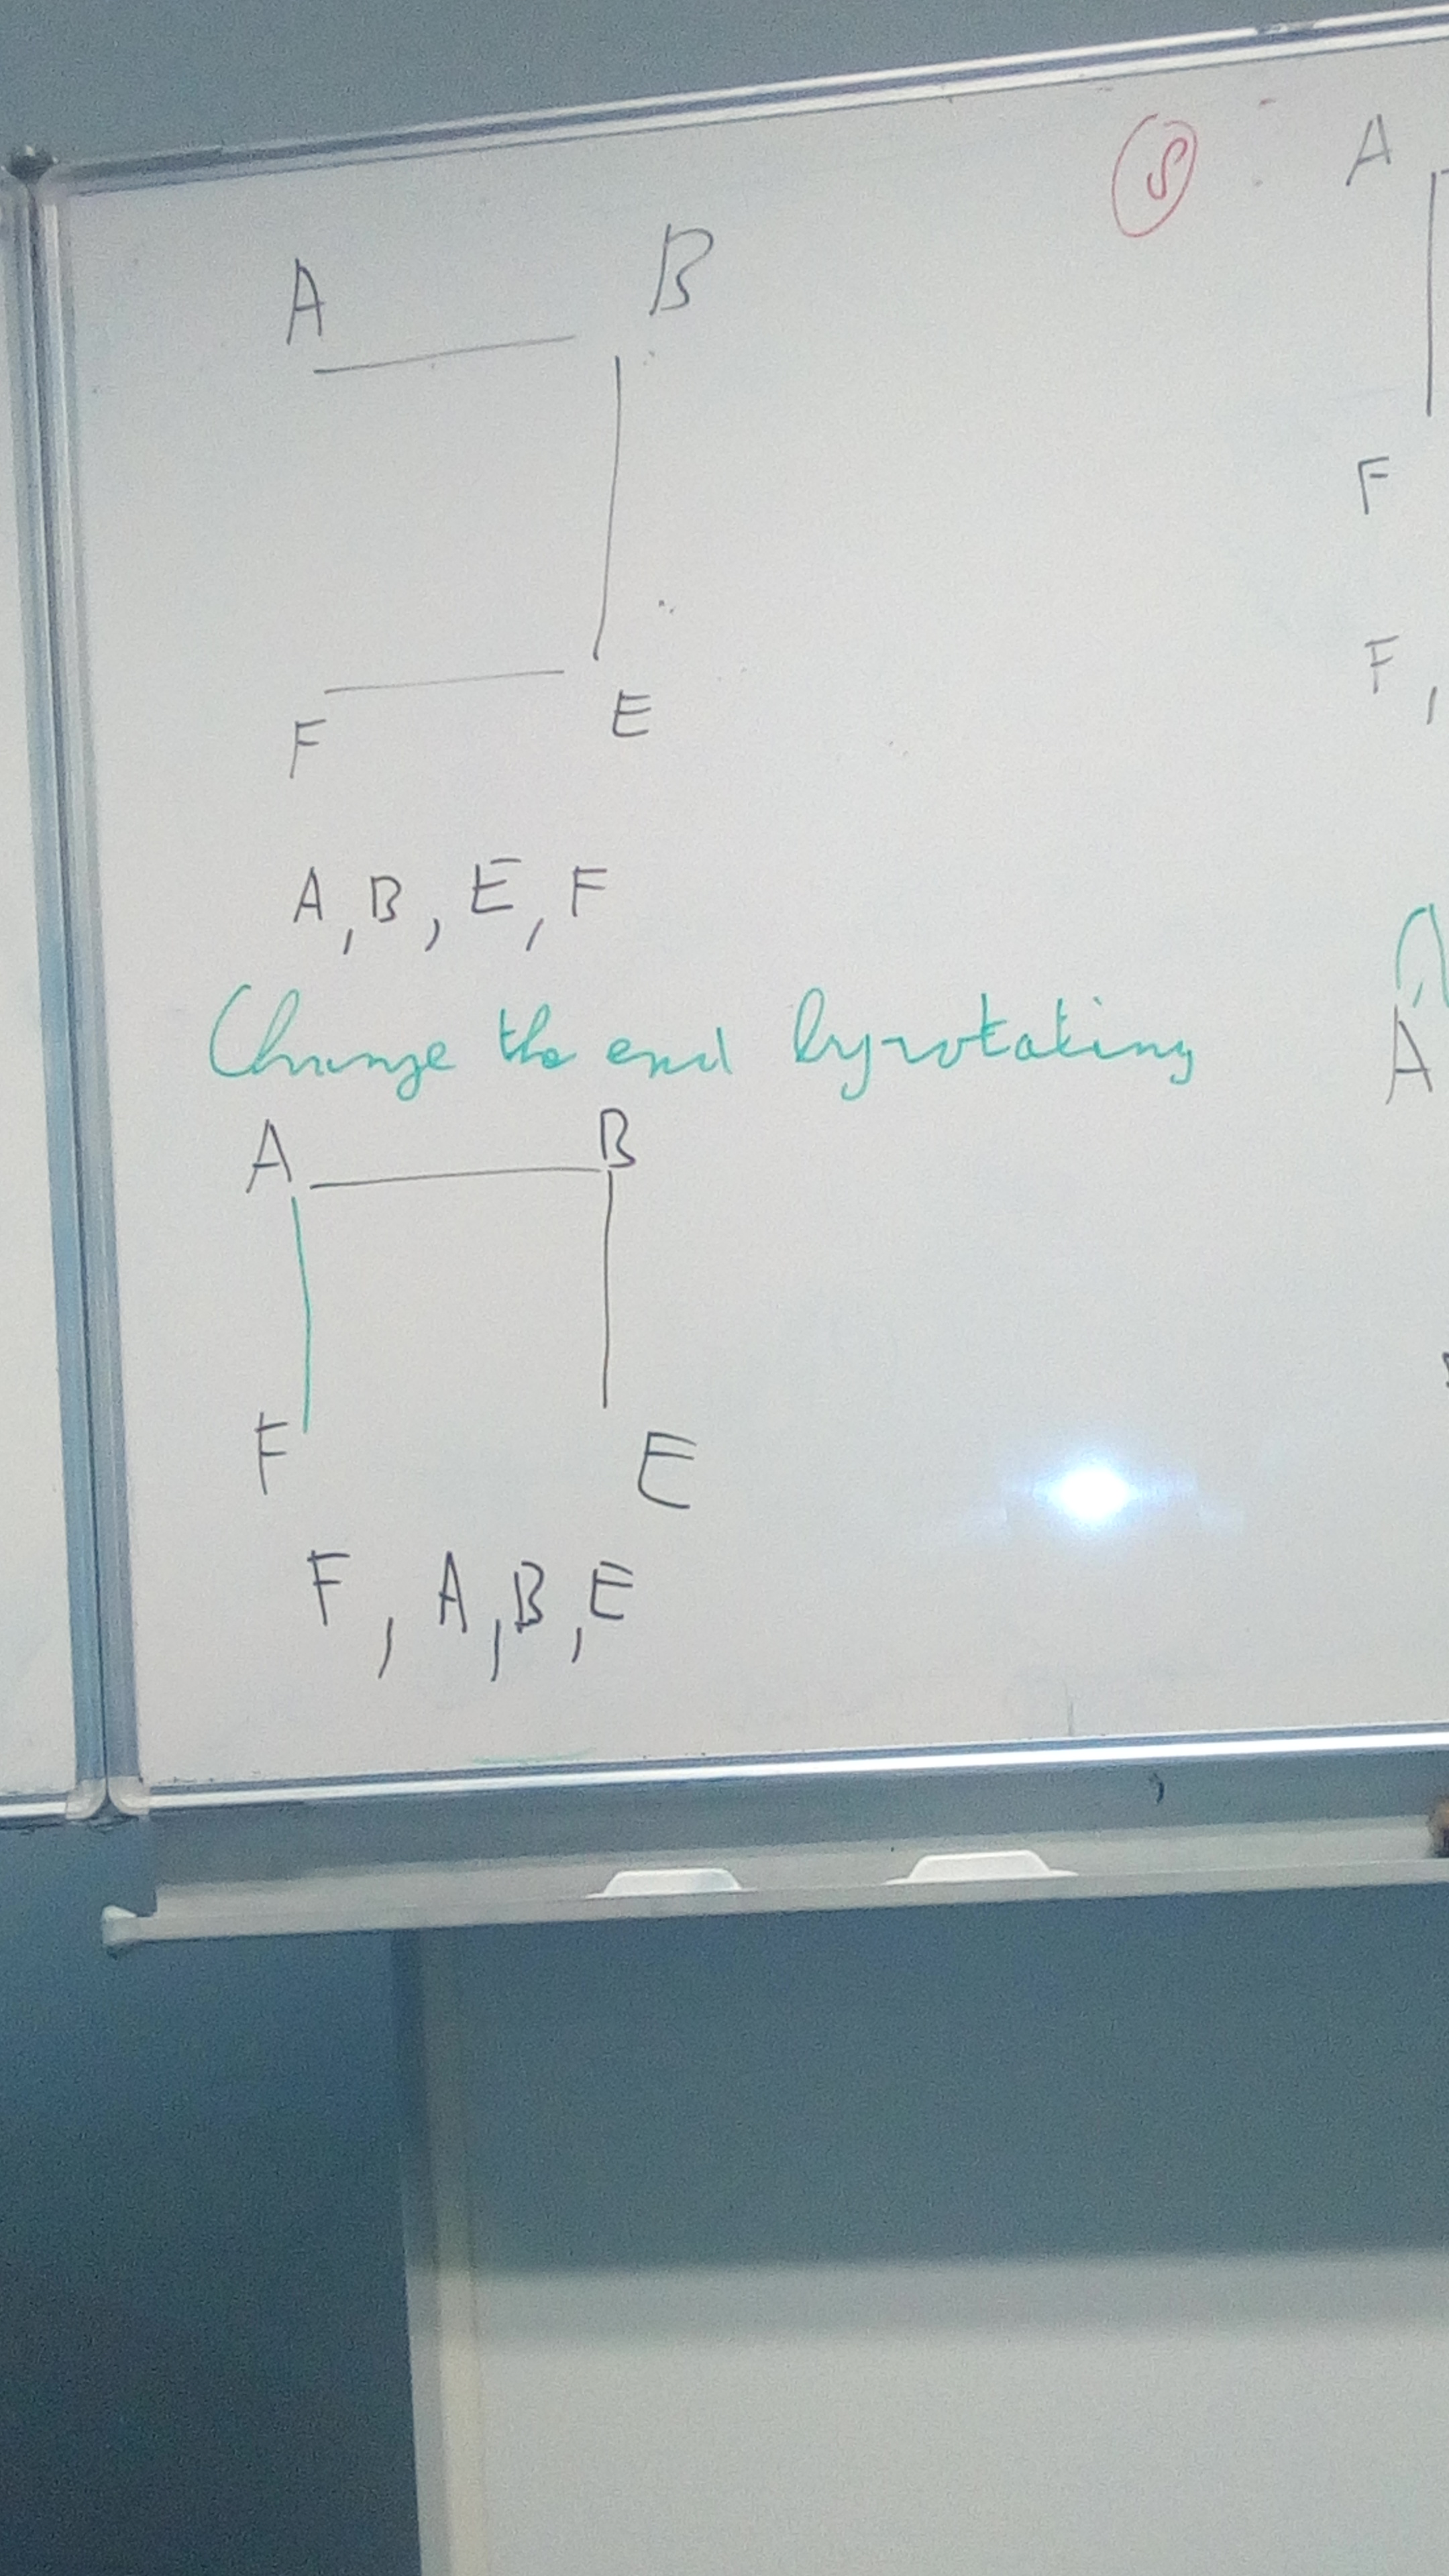 A B
F E
A, B, E, F
Change the end by rotating
A B
F E
F, A, B, E
A
F
F,
A